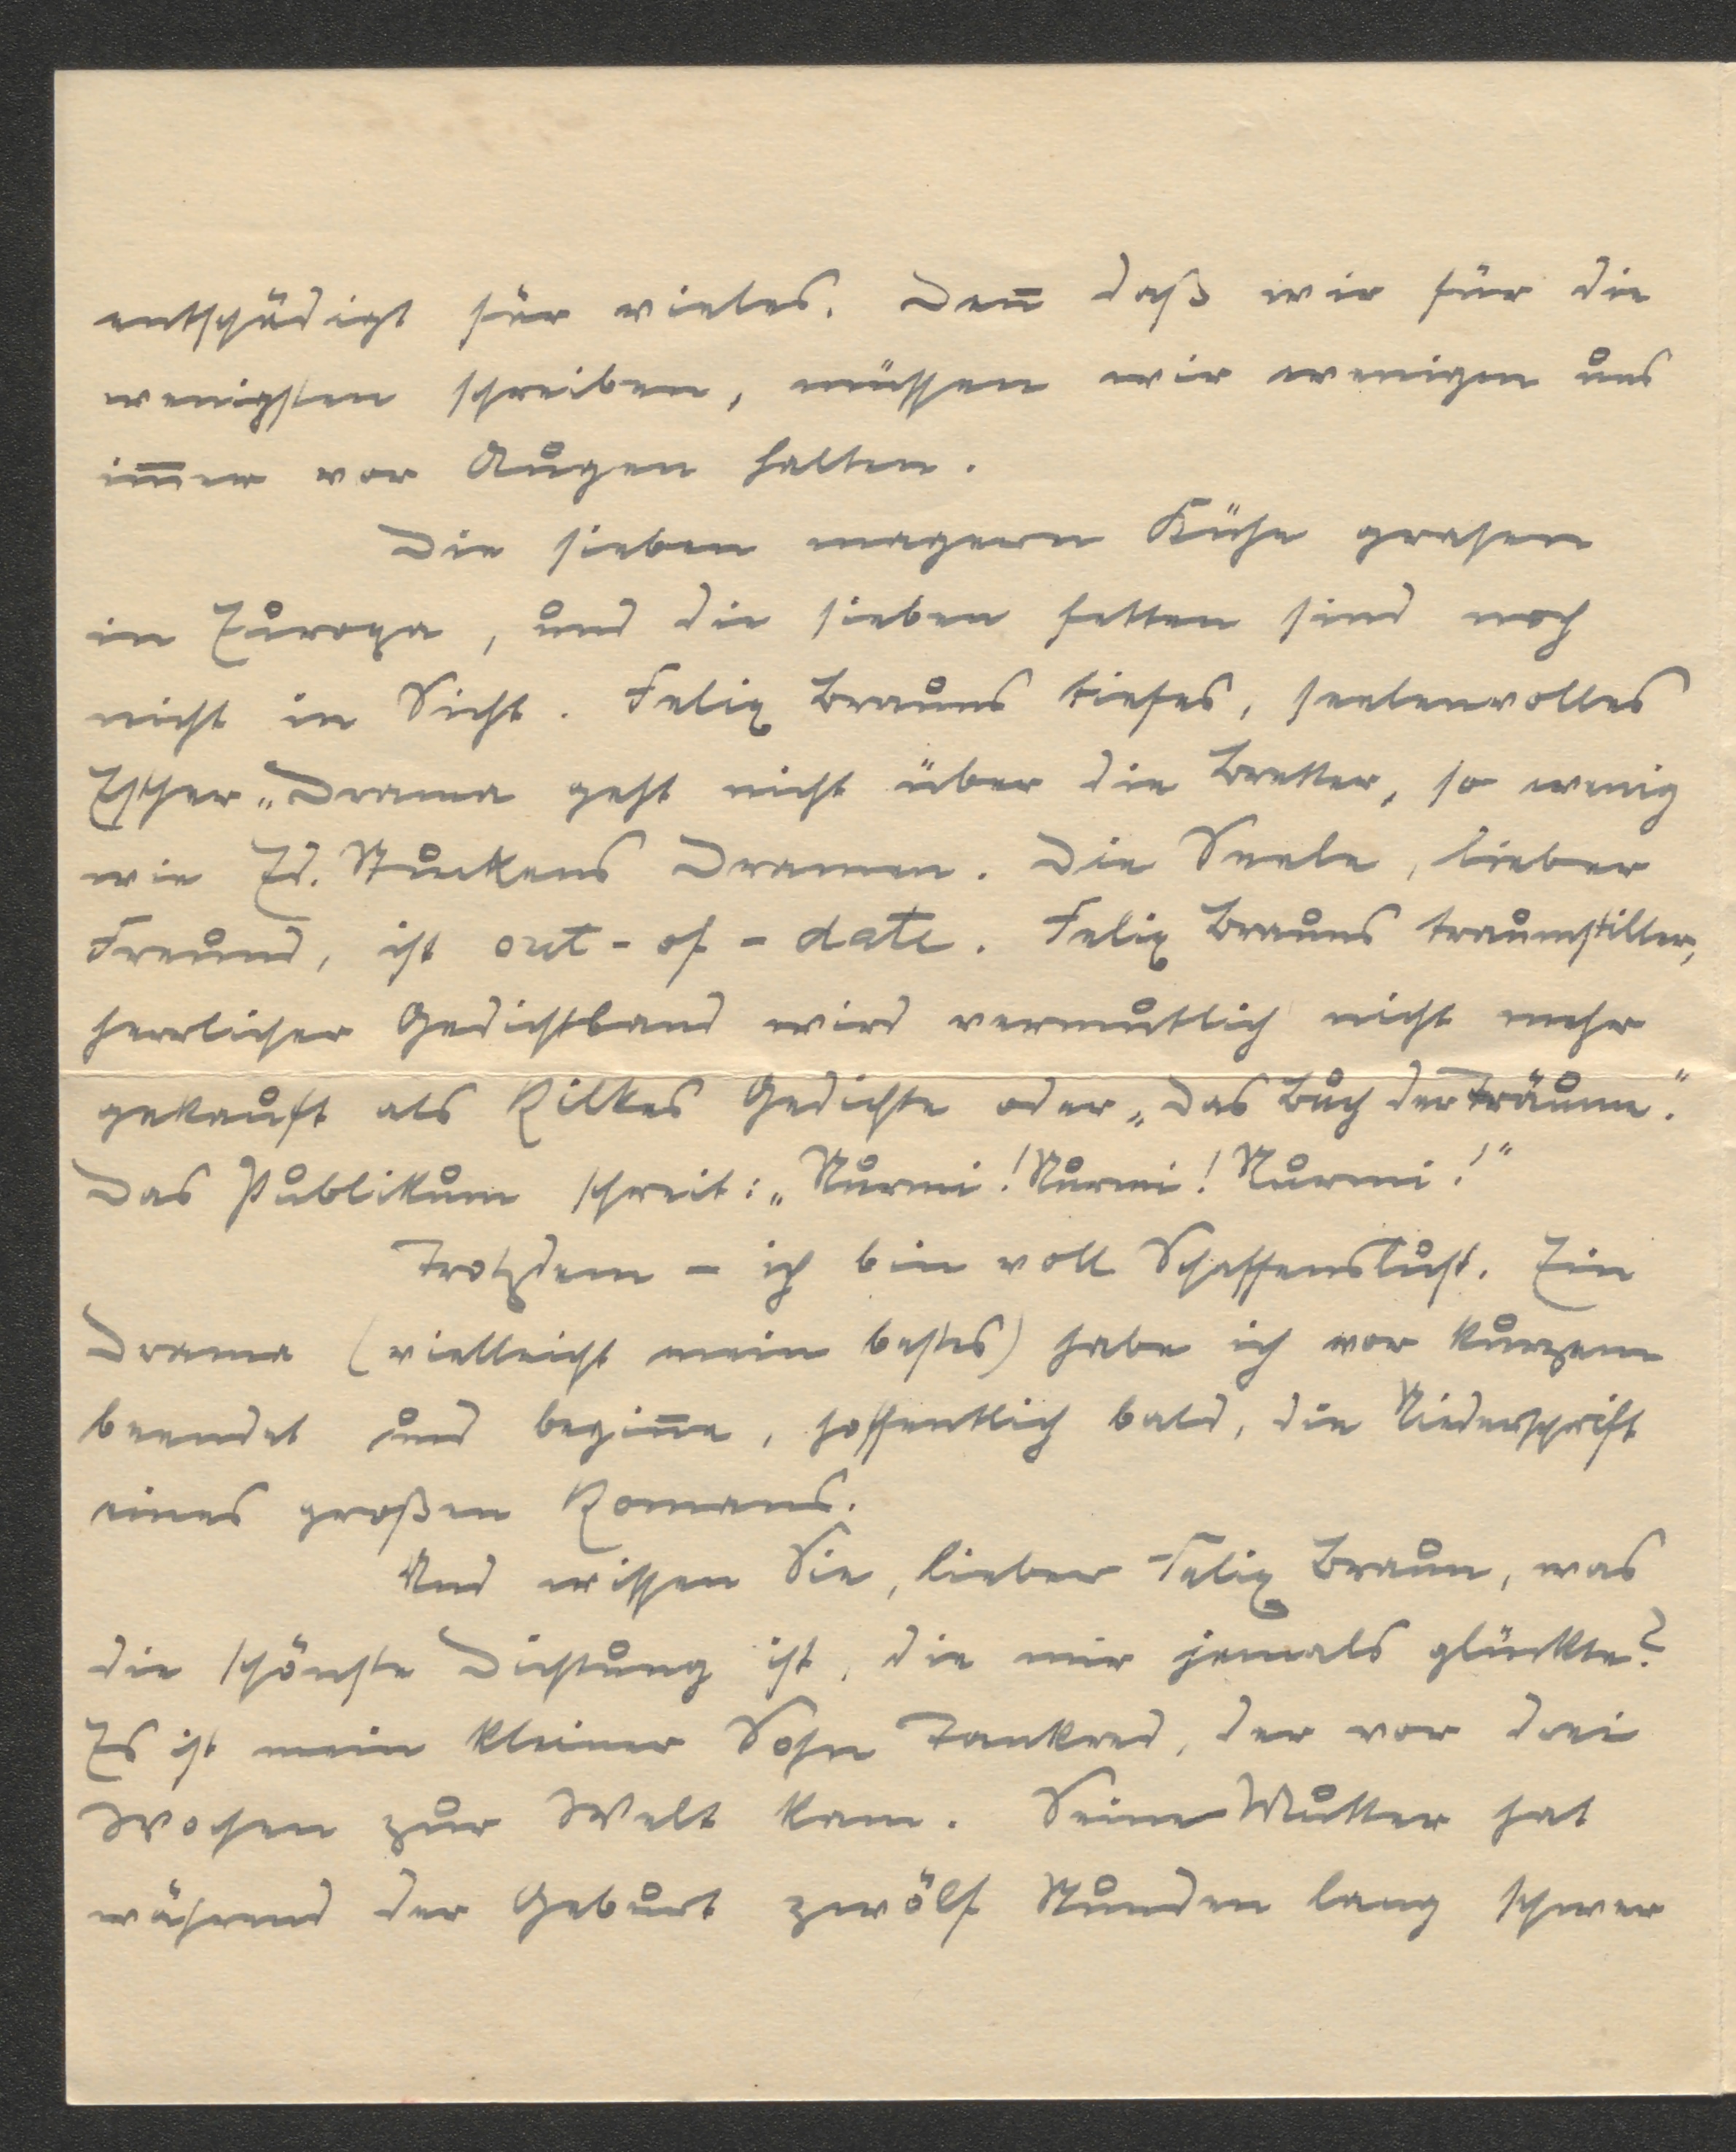 entschädigt für vieles. Den̅ daß wir für die
wenigsten schreiben, müssen wir wenigen uns
im̅er vor Augen halten.
Die sieben magern Kühe grasen
in Europa, und die sieben fetten sind noch
nicht in Sicht. Felix Brauns tiefes, seelenvolles
Esther-Drama geht nicht über die Bretter, so wenig
wie Ed. Stuckens Dramen. Die Seele, lieber
Freund, ist out-of-date. Felix Brauns traumstiller,
herrlicher Gedichtband wird vermutlich nicht mehr
gekauft als Rilkes Gedichte oder „Das Buch der Träume."
Das Publikum schreit: „Nurmi! Nurmi! Nurmi!"
Trotzdem – ich bin voll Schaffenslust. Ein
Drama (vielleicht mein bestes) habe ich vor kurzem
beendet und begin̅e, hoffentlich bald, die Niederschrift
eines großen Romans.
Und wissen Sie, lieber Felix Braun, was
die schönste Dichtung ist, die mir jemals glückte?
Es ist mein kleiner Sohn Tankred, der vor drei
Wochen zur Welt kam. Seine Mutter hat
während der Geburt zwölf Stunden lang schwer